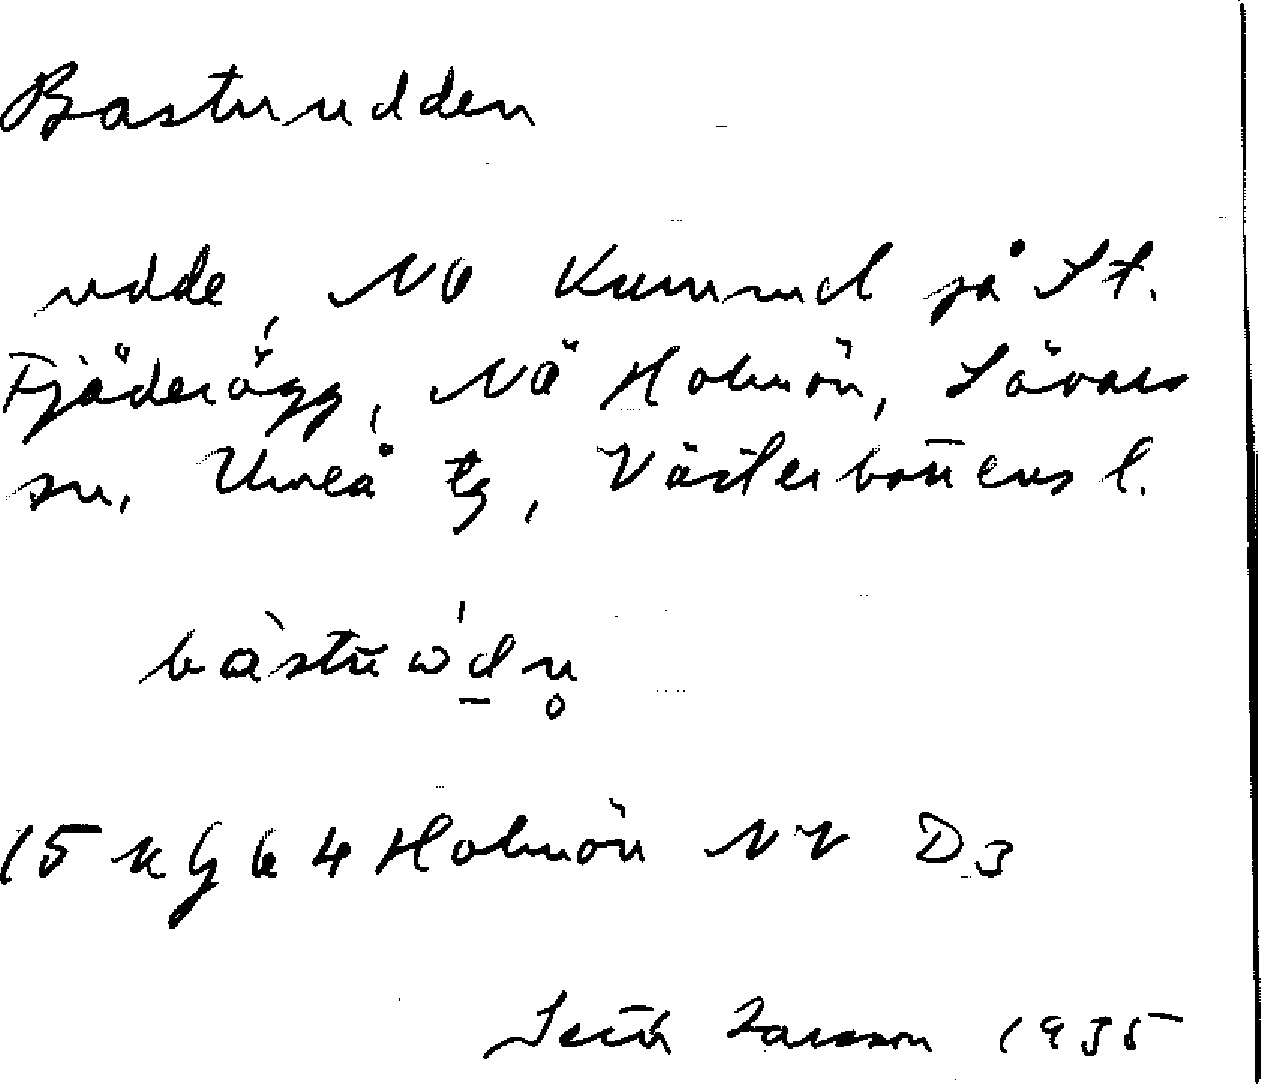 Basturudden
udde, NO Kummel på St.
Fjäderägg, NÖ Holmön, Sävars
sn, Umeå tg, Västerbottens l.
bàstuẁdn̥
15 K 6 4 Holmön NV D3
Larsson 1935